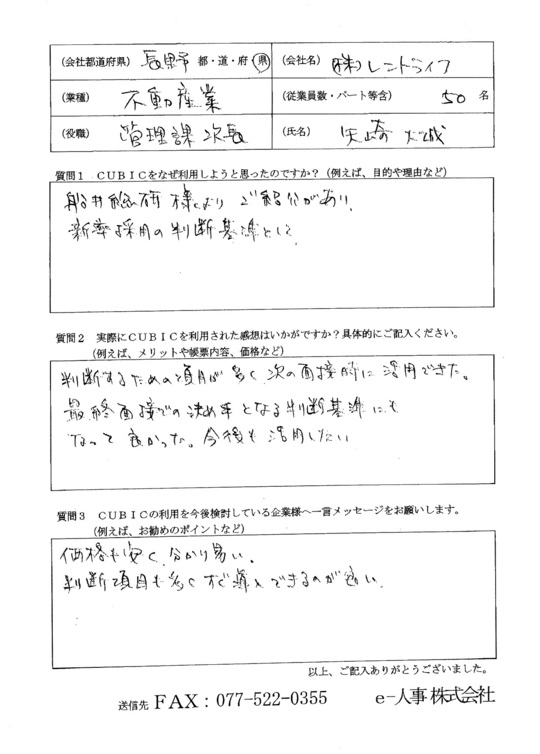 (会社都道府県) 長野 都・道・府・県 (会社名) (株)レントライフ
(業種) 不動産業 (従業員数・パート等含) 50 名
(役職) 管理課次長 (氏名) 矢崎 大城
質問1 CUBICをなぜ利用しようと思ったのですか?(例えば、目的や理由など)
船井総研様より ご紹介があり、
新卒採用の判断基準として
質問2 実際にCUBICを利用された感想はいかがですか?具体的にご記入ください。
(例えば、メリットや帳票内容、価格など)
判断するための項目が多く、次の面接時に活用できた。
最終面接での決め手となる判断基準にも
なって良かった。今後も活用したい
質問3 CUBICの利用を今後検討している企業様へ一言メッセージをお願いします。
(例えば、お勧めのポイントなど)
価格も安く、分かり易い。
判断項目も多くすぐ導入できるのが良い。
以上、ご記入ありがとうございました。
送信先 FAX:077-522-0355 e-人事株式会社